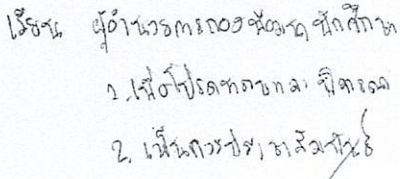 เรียน ผู้อำนวยการกองพัฒนานักศึกษา
1. เพื่อโปรดทราบและพิจารณา
2. เห็นควรประชาสัมพันธ์